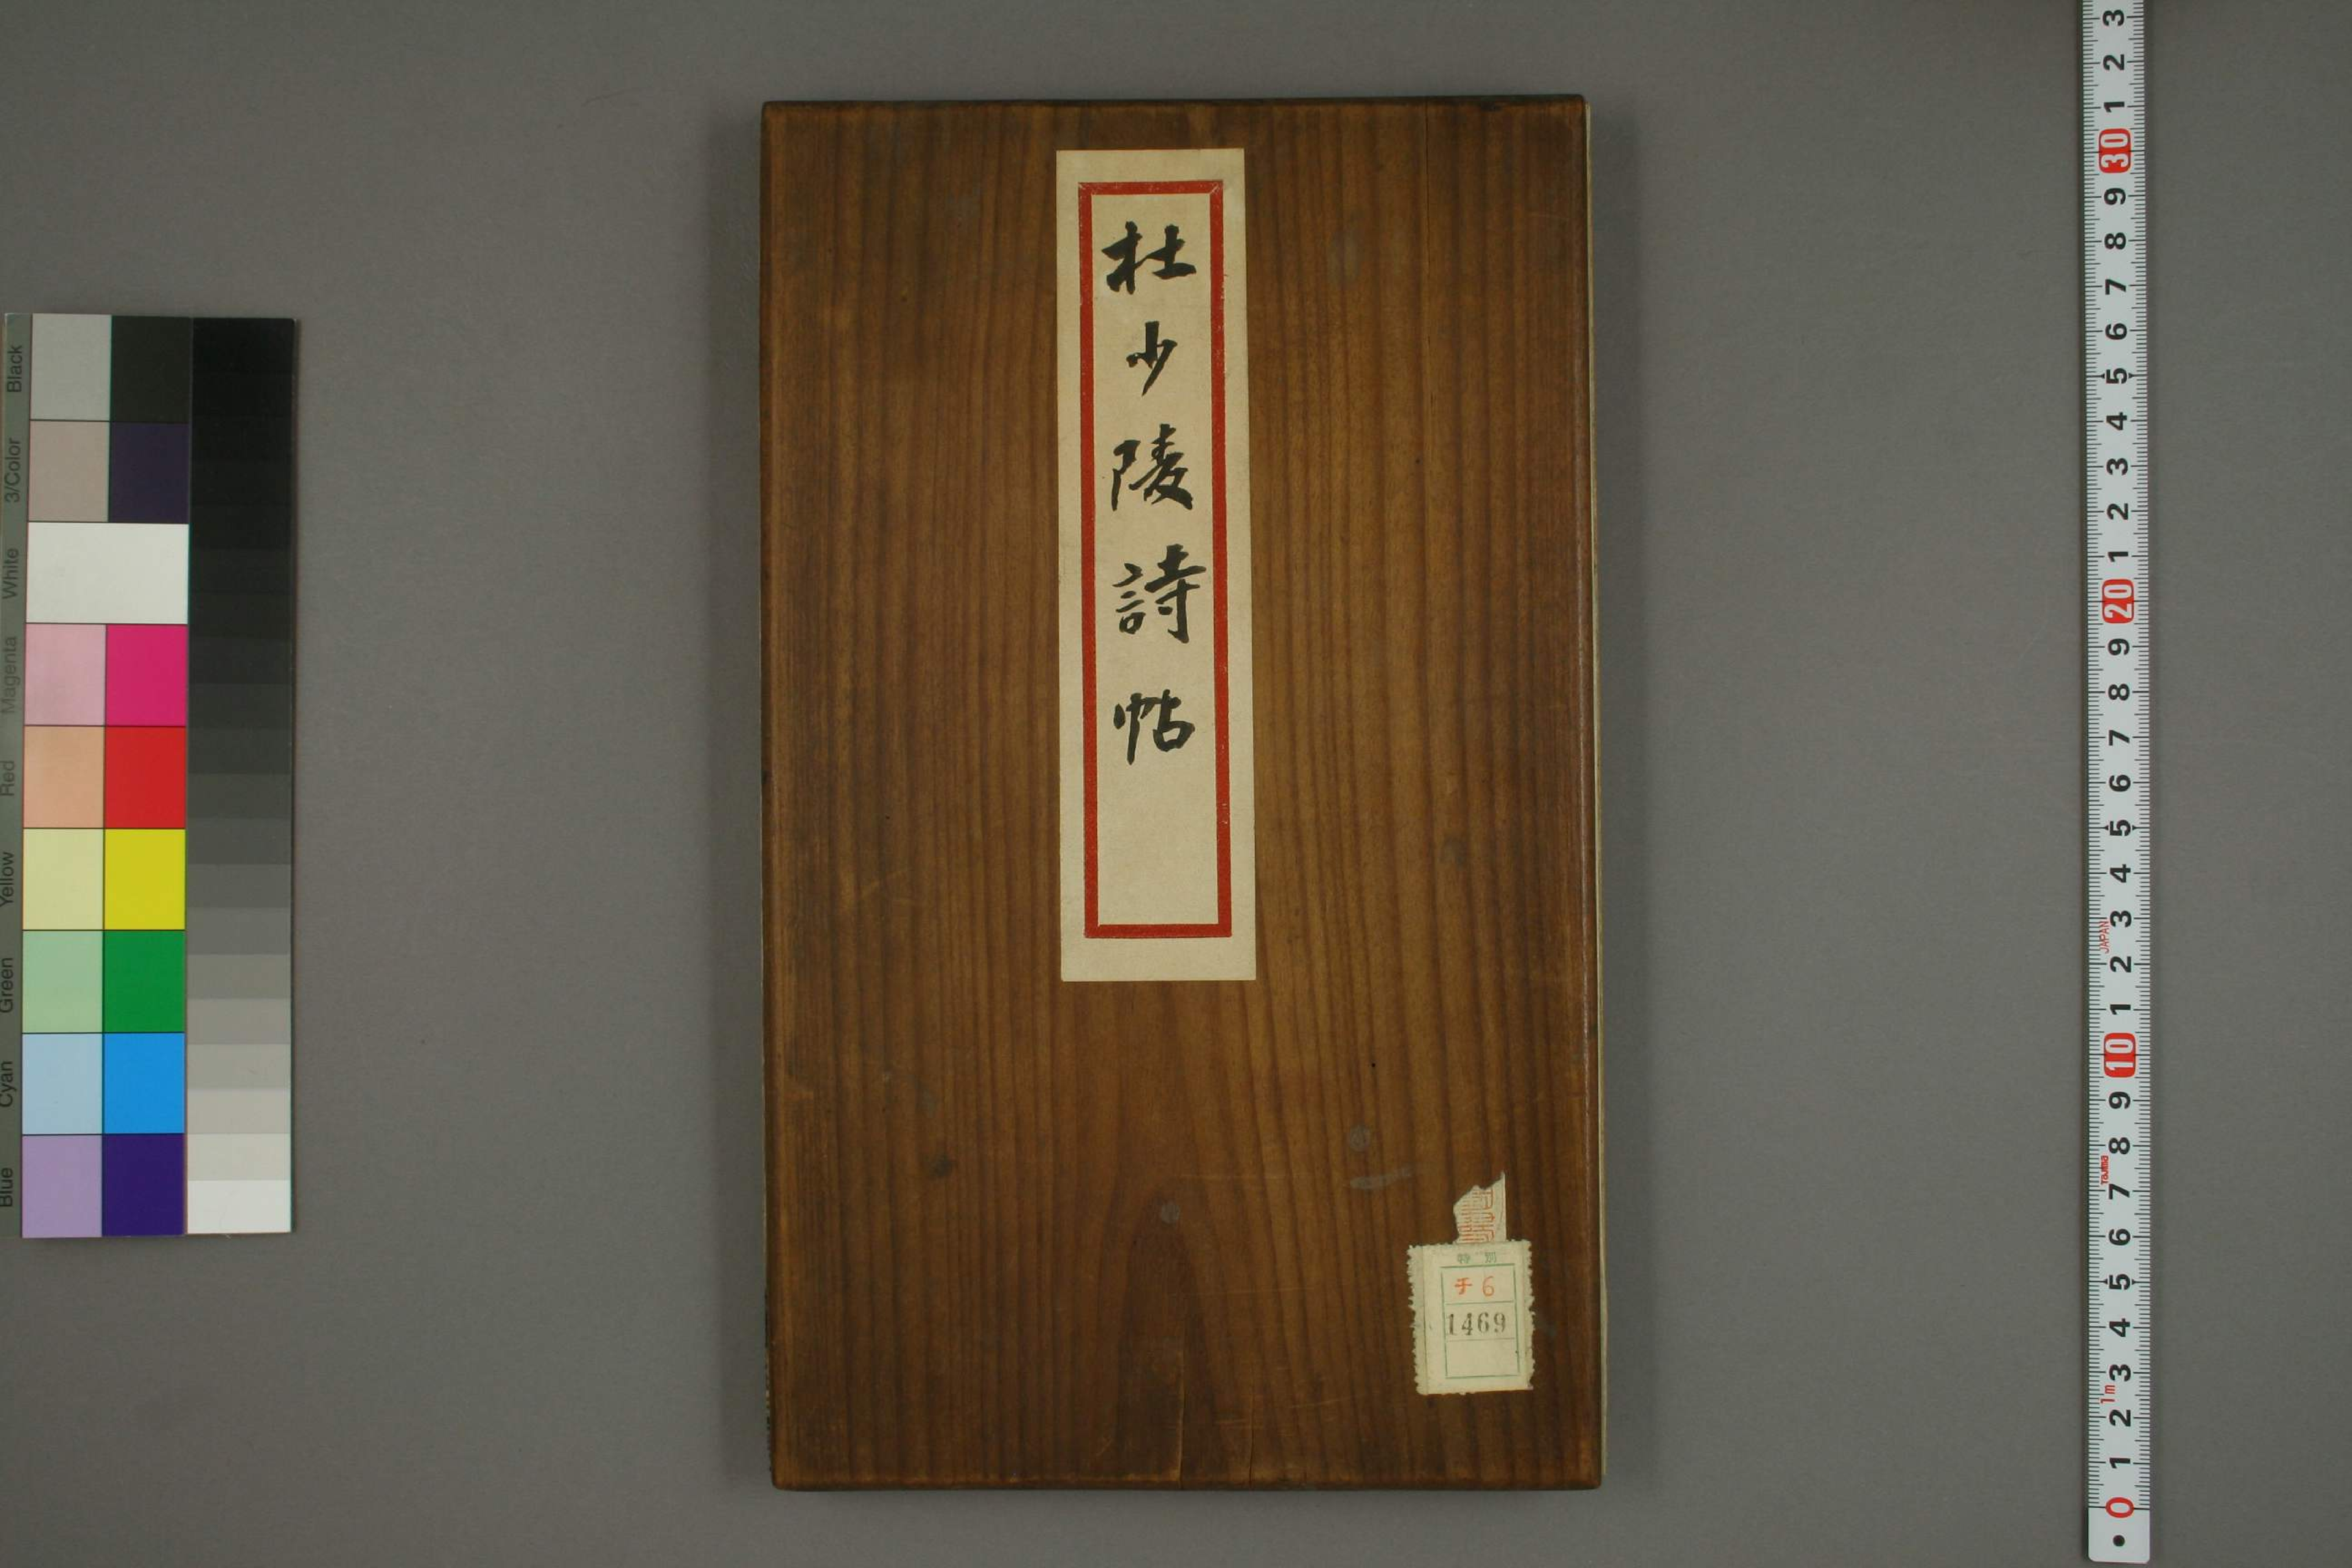 杜少陵詩帖
特別
チ6
1469
Black
3/Color
White
Magenta
Red
Yellow
Green
Cyan
Blue
3
2
1
30
9
8
7
6
5
4
3
2
1
20
9
8
7
6
5
4
3
JAPAN
2
1
10
9
8
Tajima
7
6
5
4
3
1m
2
1
0